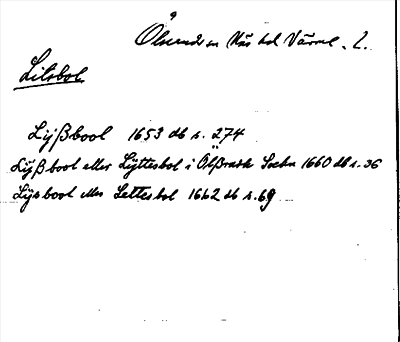 Ölserud sn Näs hd Värml. l.
Lilsbol
Lijßbool 1653 db s. 274
Lijßbool eller Lÿttesbol i Ölßrudh Sochn 1660 db s. 36
Lijsbool eller Lettesbol 1662 db s. 69